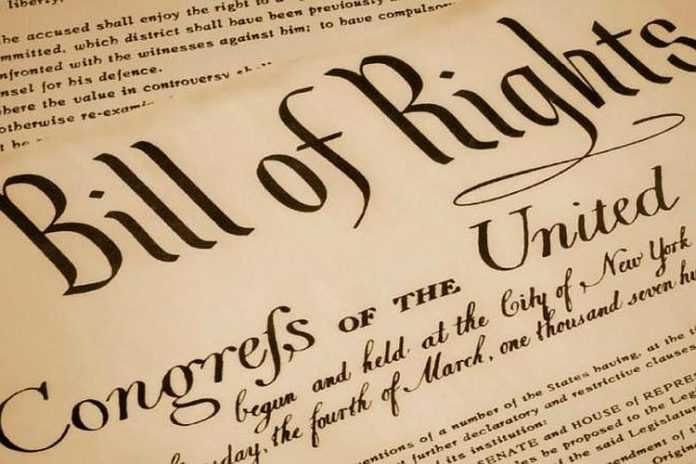 liberty,
he accused shall enjoy the right to a
mmitted, which district shall have been previously
nfronted with the witnesses against him; to have compulsory
nsel for his defence.
here the value in controversy shall
otherwise re-exami
Bill of Rights
Congreſs OF THE United
begun and held at the City of New York
day, the fourth of March, one thousand seven hu
ventions of a number of the States having, at the
further declaratory and restrictive clauses
its institution:
SENATE and HOUSE of REPRE
be proposed to the Leg
the said Legislatu
mendment of
Origi